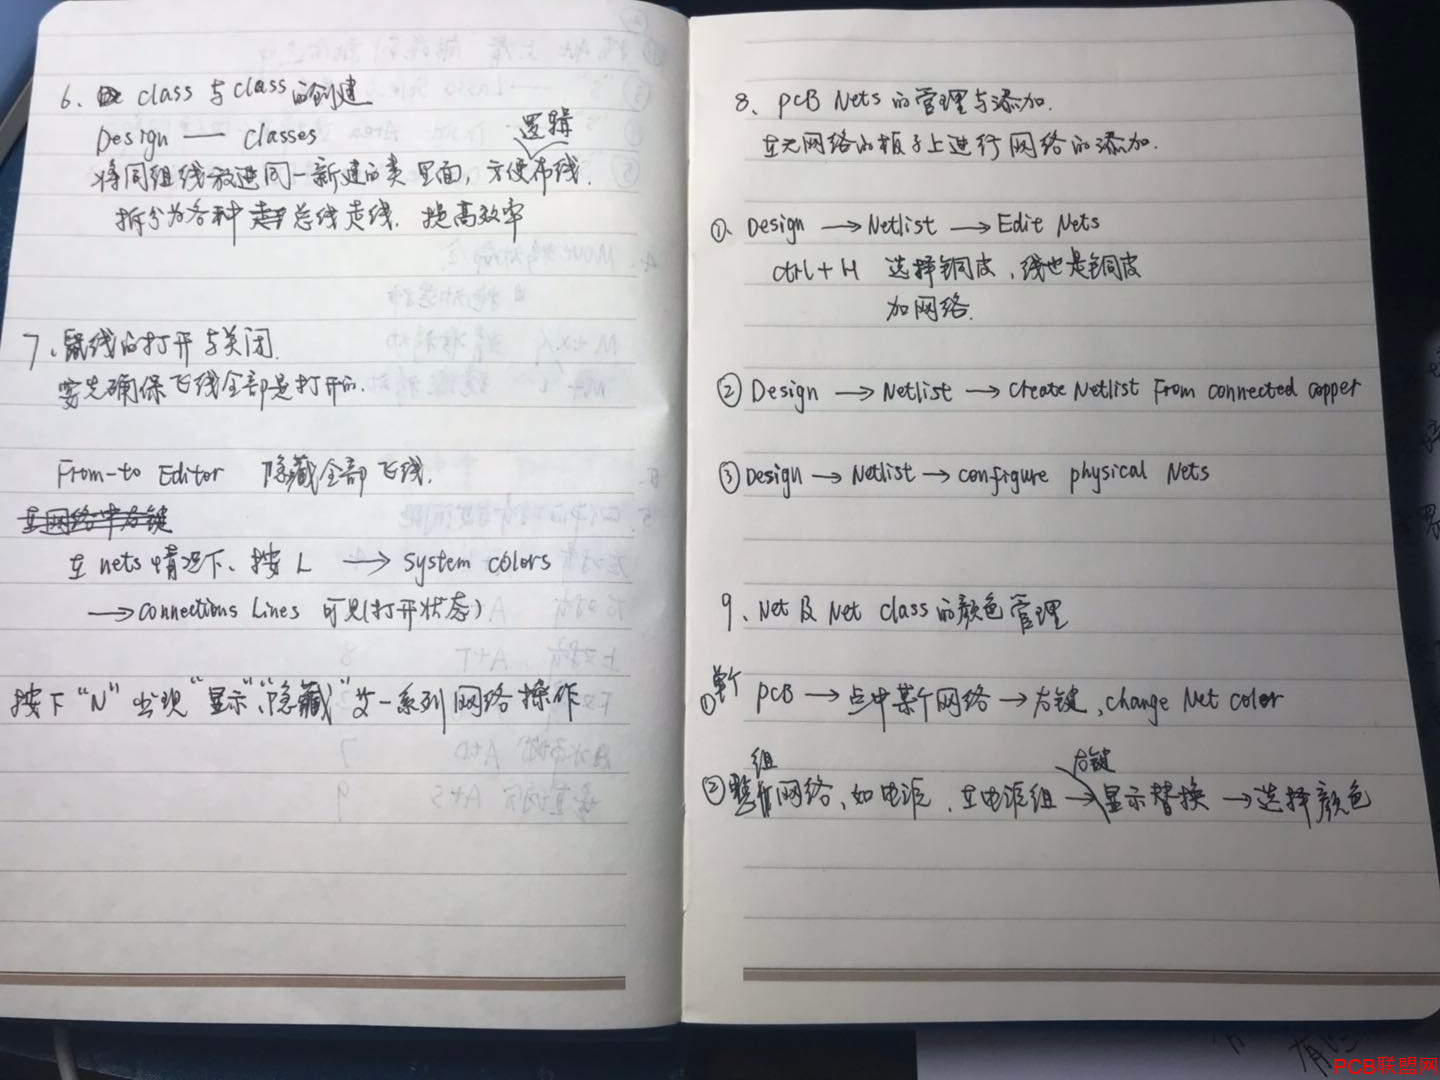 6、class与class的创建
Design — Classes
逻辑
将同组线放进同一新建的类里面，方便布线.
拆分为各种总线走线. 提高效率
7、鼠线的打开与关闭.
要先确保飞线全部是打开的.
From-to Editor 隐藏全部飞线.
在网络中右键
在nets情况下、按L → System colors
→ Connections Lines 可见(打开状态)
按下“N”出现“显示”、“隐藏”及一系列网络操作
8、PCB Nets的管理与添加.
在无网络的板子上进行网络的添加.
①、Design → Netlist → Edit Nets
ctrl+H 选择铜皮，线也是铜皮
加网络.
② Design → Netlist → Create Netlist From connected copper
③ Design → Netlist → configure physical Nets
9、Net及Net Class的颜色管理
单个
① PCB → 点中某个网络 → 右键、change Net color
组 右键
② 网络、如电源、在电源组 → 显示替换 → 选择颜色
PCB联盟网